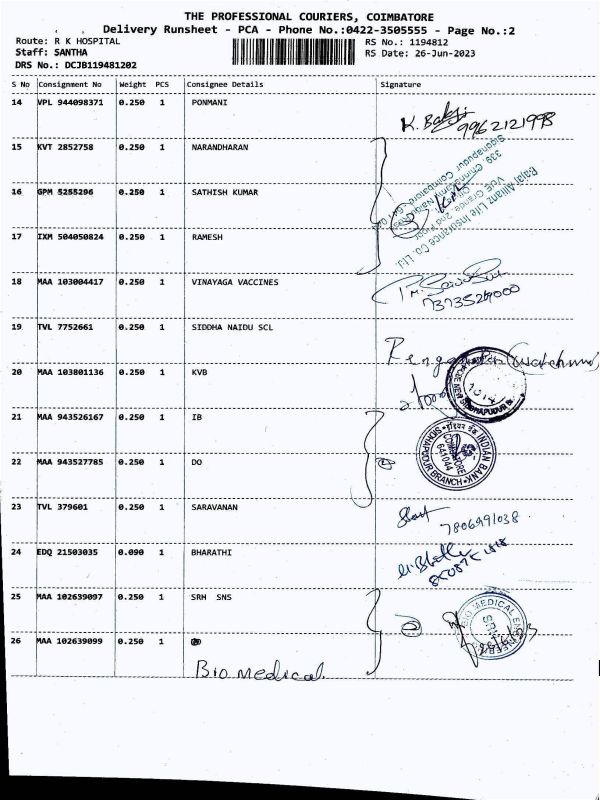 THE PROFESSIONAL COURIERS, COIMBATORE
Delivery Runsheet - PCA - Phone No.:0422-3505555 - Page No.:2
Route: R K HOSPITAL
RS No.: 1194812
Staff: SANTHA
RS Date: 26-Jun-2023
DRS No.: DCJB119481202
S No Consignment No Weight PCS Consignee Details Signature
14 VPL 944098371 0.250 1 PONMANI
9962121998
15 KVT 2852758 0.250 1 NARANDHARAN
16 GPM 5255296 0.250 1 SATHISH KUMAR
Bajaj Allianz Life Insurance Co. Ltd
17 IXM 504050824 0.250 1 RAMESH
18 MAA 103004417 0.250 1 VINAYAGA VACCINES
19 TVL 7752661 0.250 1 SIDDHA NAIDU SCL
20 MAA 103801136 0.250 1 KVB
21 MAA 943526167 0.250 1 IB
INDIAN BANK
COIMBATORE
641044
SIDHAPUDUR BRANCH
22 MAA 943527785 0.250 1 DO
23 TVL 379601 0.250 1 SARAVANAN
7806991038
24 EDQ 21503035 0.090 1 BHARATHI
25 MAA 102639097 0.250 1 SRH SNS
BIO MEDICAL
26 MAA 102639099 0.250 1
Bio medical